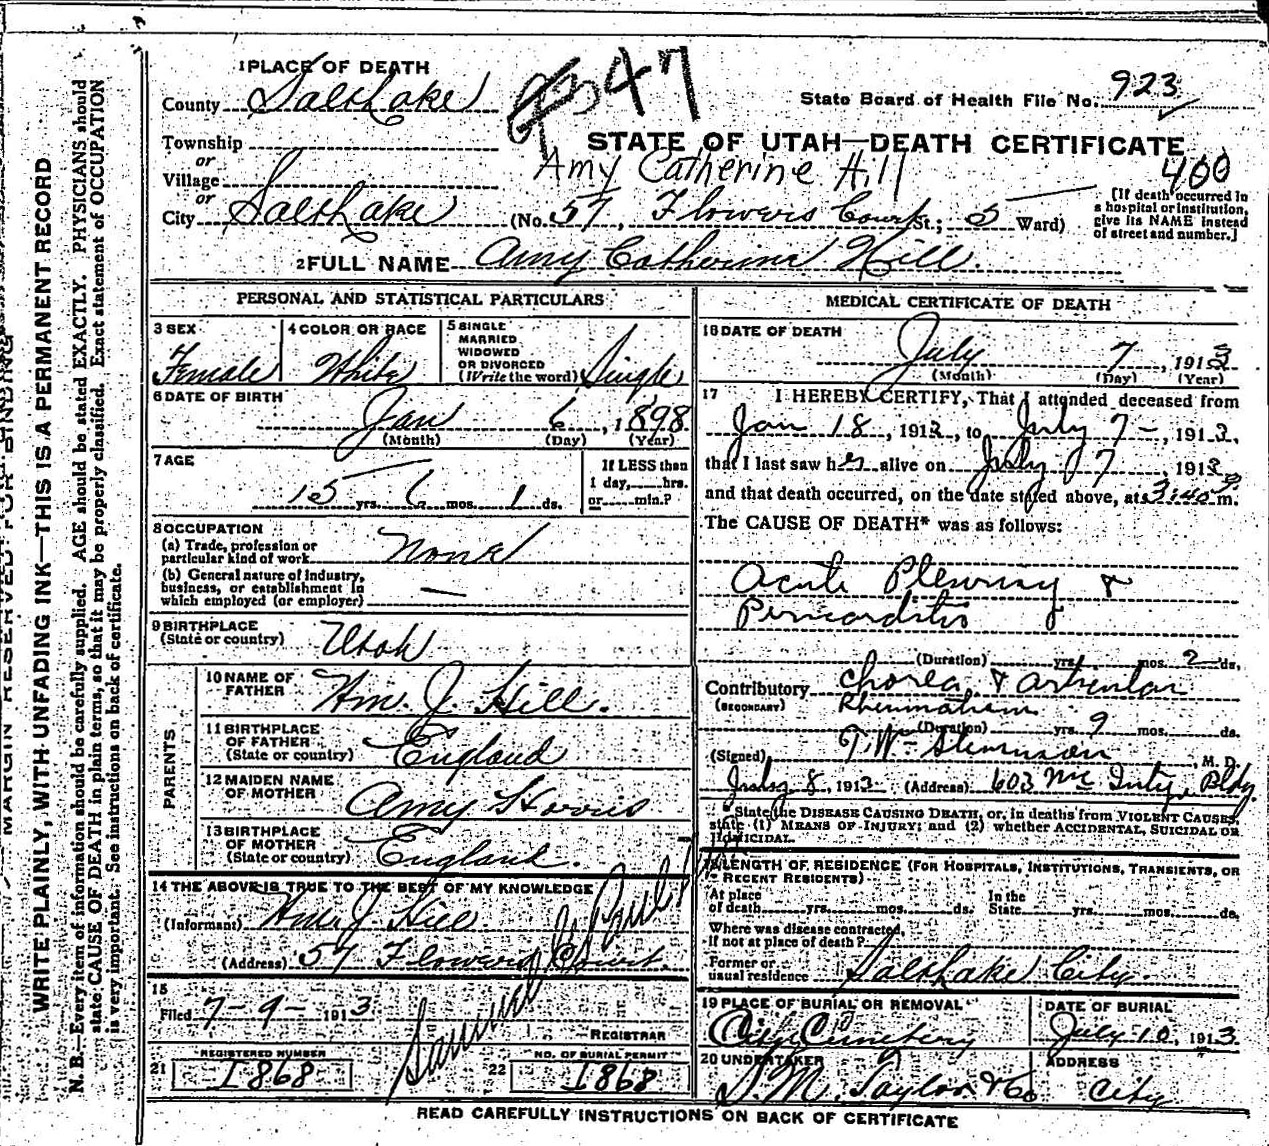 MARGIN RESERVED FOR BINDING
WRITE PLAINLY, WITH UNFADING INK—THIS IS A PERMANENT RECORD
N. B.—Every item of information should be carefully supplied. AGE should be stated EXACTLY. PHYSICIANS should
state CAUSE OF DEATH in plain terms, so that it may be properly classified. Exact statement of OCCUPATION
is very important. See instructions on back of certificate.
1 PLACE OF DEATH
County Salt Lake
Township
or
Village
or
City Salt Lake
47
State Board of Health File No. 923
STATE OF UTAH—DEATH CERTIFICATE
Amy Catherine Hill
400
(No. 57, Flowers Court St.; 5 Ward)
[If death occurred in
a hospital or institution,
give its NAME instead
of street and number.]
2 FULL NAME Amy Catherine Hill.
PERSONAL AND STATISTICAL PARTICULARS
3 SEX
Female
4 COLOR OR RACE
White
5 SINGLE
MARRIED
WIDOWED
OR DIVORCED
(Write the word) Single
6 DATE OF BIRTH
Jan 6, 1898
(Month) (Day) (Year)
7 AGE
15 yrs. 6 mos. 1 ds.
If LESS than
1 day, hrs.
or min.?
8 OCCUPATION
(a) Trade, profession or
particular kind of work None
(b) General nature of industry,
business, or establishment in
which employed (or employer) —
9 BIRTHPLACE
(State or country) Utah
PARENTS
10 NAME OF
FATHER Wm. J. Hill.
11 BIRTHPLACE
OF FATHER
(State or country) England
12 MAIDEN NAME
OF MOTHER Amy Harris
13 BIRTHPLACE
OF MOTHER
(State or country) England.
14 THE ABOVE IS TRUE TO THE BEST OF MY KNOWLEDGE
(Informant) Wm J. Hill.
(Address) 57 Flowers Court.
15
Filed 7-9-1913
Samuel G. Paul
REGISTRAR
REGISTERED NUMBER
21 1868
NO. OF BURIAL PERMIT
22 1868
MEDICAL CERTIFICATE OF DEATH
16 DATE OF DEATH
July 7, 1913
(Month) (Day) (Year)
17 I HEREBY CERTIFY, That I attended deceased from
Jan 18, 1913, to July 7-, 1913,
that I last saw her alive on July 7, 1913
and that death occurred, on the date stated above, at 3:40 m.
The CAUSE OF DEATH* was as follows:
Acute Pleurisy &
Pericarditis
(Duration) yrs. mos. 2 ds.
Contributory Chorea & Articular
(SECONDARY) Rheumatism
(Duration) yrs. 9 mos. ds.
(Signed) T. W. Stevenson, M. D.
July 8, 1913 (Address) 603 McIntyre Bldg.
*State the DISEASE CAUSING DEATH, or, in deaths from VIOLENT CAUSES,
state (1) MEANS OF INJURY; and (2) whether ACCIDENTAL, SUICIDAL OR
HOMICIDAL.
18 LENGTH OF RESIDENCE (FOR HOSPITALS, INSTITUTIONS, TRANSIENTS, OR
RECENT RESIDENTS)
At place
of death yrs. mos. ds.
In the
State yrs. mos. ds.
Where was disease contracted,
if not at place of death?
Former or
usual residence Salt Lake City.
19 PLACE OF BURIAL OR REMOVAL
City Cemetery
DATE OF BURIAL
July 10, 1913
20 UNDERTAKER
S. M. Taylor & Co
ADDRESS
City
READ CAREFULLY INSTRUCTIONS ON BACK OF CERTIFICATE